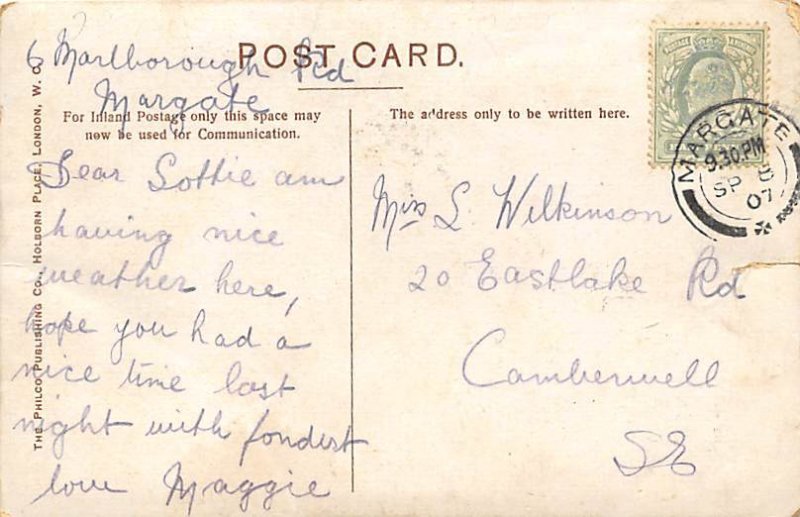 POST CARD.
6 Marlborough Rd
Margate
For Inland Postage only this space may
now be used for Communication.
The address only to be written here.
Dear Lottie am
having nice
weather here,
hope you had a
nice time last
night with fondest
love Maggie
Miss L. Wilkinson
20 Eastlake Rd
Camberwell
SE
MARGATE
9.30 PM
SP 8
07
POSTAGE
THE PHILCO PUBLISHING CO., HOLBORN PLACE, LONDON, W. C.